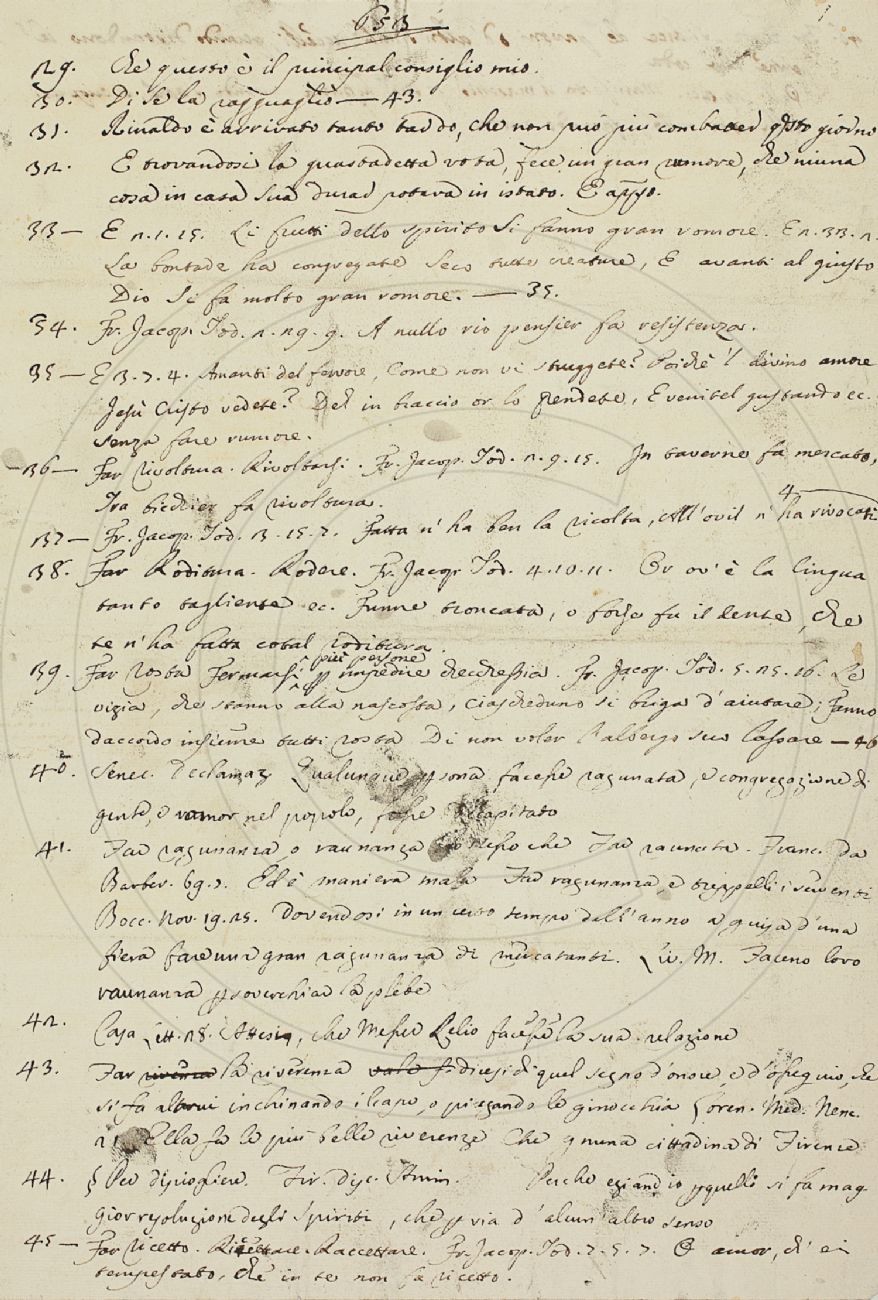 653
29. Che questo è il principal consiglio mio.
30. Di se la ragguaglio — 43.
31. Rinaldo è arrivato tanto tardo, che non può più combatter questo giorno
32. E trovandosi la guastadetta vota, fece un gran rumore, che niuna
cosa in casa sua durar poteva in istato. E appo.
33 — E 2.1.15. Li frutti dello spirito Si fanno gran romore. E 2.33.2.
La bontade ha congregate Seco tutte creature, E avanti al giusto
Dio Si fa molto gran romore. — 35.
34. Fr. Jacop. Tod. 2. 29. 9. A nullo rio pensier fa resistenza.
35 — E 3.7.4. Amanti del fervore, Come non vi struggete? Poichè 'l divino amore
Jesù Cristo vedete? Deh in braccio or lo prendete, E venitel gustando ec.
senza fare rumore.
36 — Far rivoltura. Rivoltarsi. Fr. Jacop. Tod. 2. 9. 15. In taverne fa mercato,
Tra bicchier fa rivoltura.
37 — Fr. Jacop. Tod. 3. 15. 7. Fatta n' ha ben la ricolta, All' ovil n' ha rivocati
38. Far Roditura. Rodere. Fr. Jacop. Tod. 4. 10. 11. Or ov' è la lingua
tanto tagliente ec. Funne troncata, o forse fu il dente, che
te n' ha fatta cotal roditura.
39. Far rosta Fermarsi più persone p impedire checchessia. Fr. Jacop. Tod. 5. 25. 16. Le
vizia, che stanno alla nascosta, ciascheduno si briga d' aiutare; Fanno
daccordo insieme tutti rosta Di non voler l' albergo suo lassare — 46
40. Senec. Declamaz. Qualunque psona facesse ragunata, e congregazione di
gente, o romor nel popolo, fosse dicapitato
41. Far ragunanza, o raunanza lo stesso che Far raunata. Franc. da
Barber. 69. 7. Ed è maniera mala Far ragunanza, e treppelli
Bocc. Nov. 19. 25. Dovendosi in un certo tempo dell' anno a guisa d' una
fiera fare una gran ragunanza di mercatanti. Liv. M. Faceno loro
raunanza p soverchiar la plebe
42. Casa Lett. 28. Attesia, che Messer Lelio facesse la sua relazione
43. Far la riverenza dicesi di quel segno d' onore, e d' ossequio, che
si fa altrui inchinando il capo, o piegando le ginocchia Loren. Med. Nenc.
21. Ella fa le più belle riverenze Che gnuna cittadina di Firenze
44. § Per Fir. Disc. Anim. Perche eziandio pquello si fa mag-
gior resoluzione degli Spiriti, che p via d' alcun' altro senso
45 — Far ricetto. Ricettare. Raccettare. Fr. Jacop. Tod. 7. 5. 7. O amor, ch' ei
tempestato, Che in te non fa ricetto.